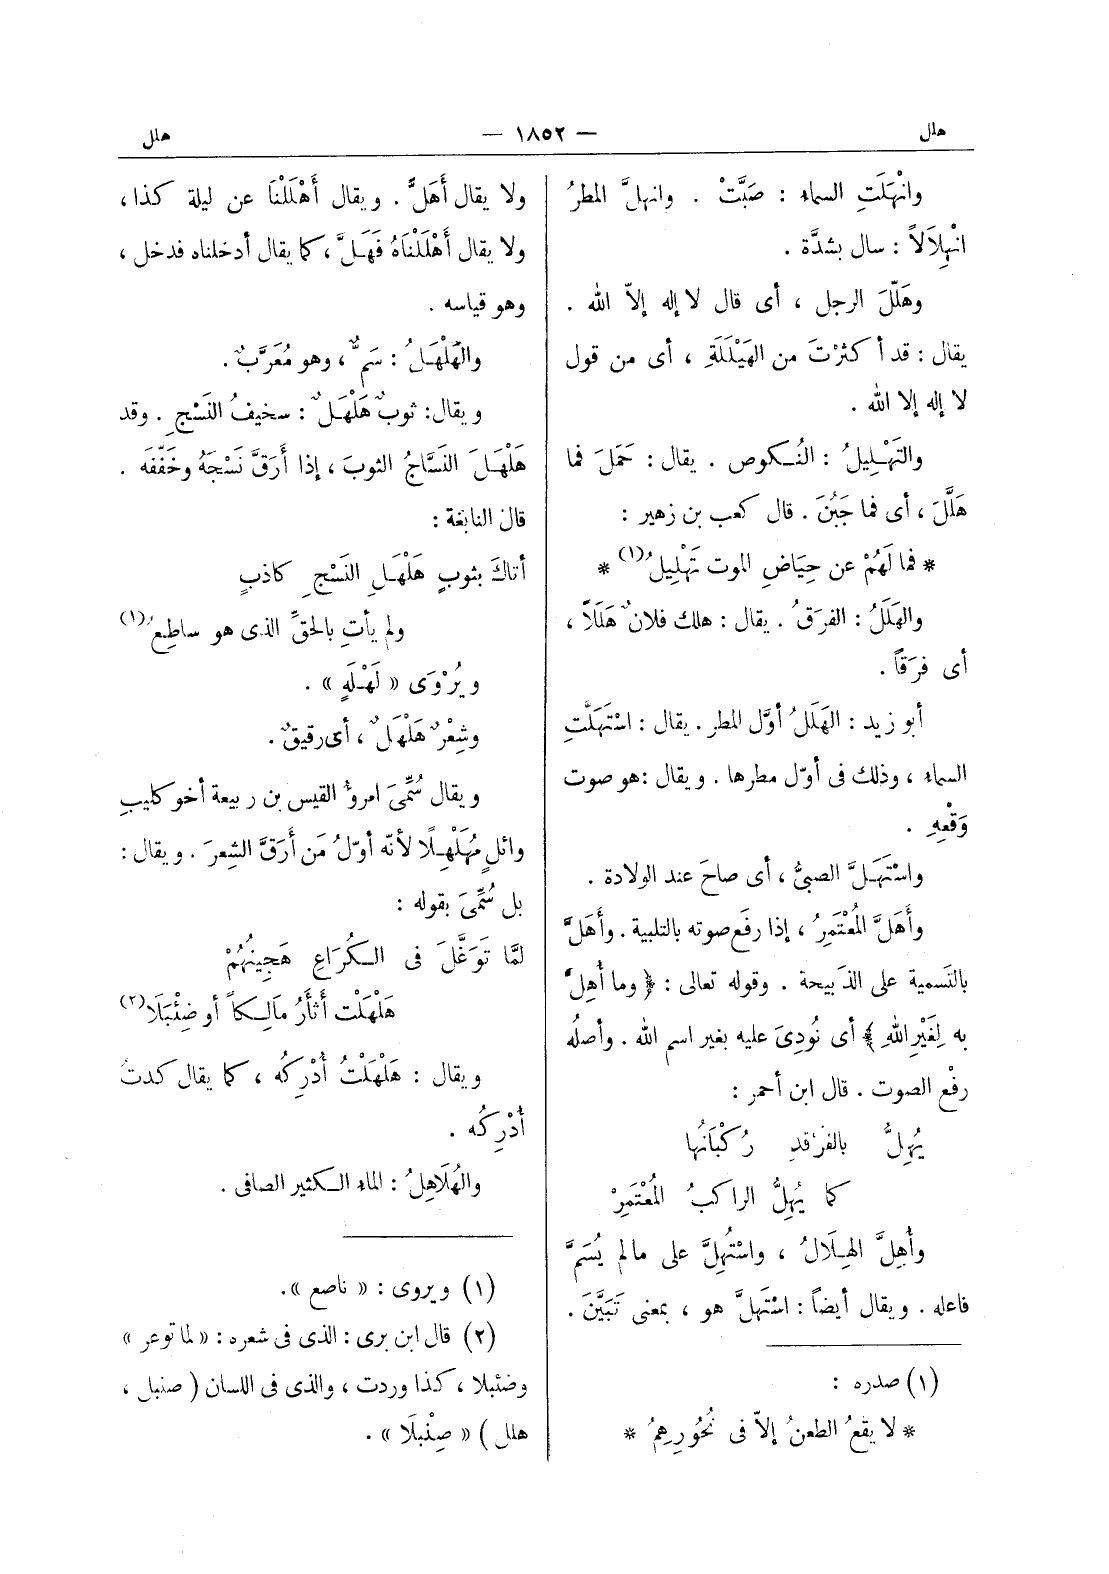 هلل — ١٨٥٢ — هلل
وانْهَلَّتِ السماء : صَبَّتْ . وانهلَّ المطرُ
انْهِلَالاً : سال بشدَّة .
وهَلّلَ الرجل ، أى قال لا إله إلاّ الله .
يقال : قد أكثرْتَ من الهَيْلَلَةِ ، أى من قول
لا إله إلا الله .
والتَهْلِيلُ : النُكوص . يقال : حَمَلَ فما
هَلَّلَ ، أى فما جَبُنَ . قال كعب بن زهير :
* فما لَهُمْ عن حِيَاضِ الموت تَهْلِيلُ (١) *
والهَلَلُ : الفرَقُ . يقال : هلك فلانٌ هَلَلاً ،
أى فرَقاً .
أبو زيد : الهَلَلُ أوَّل المطر . يقال : اسْتَهَلَّتِ
السماء ، وذلك فى أوّل مطرها . ويقال : هو صوت
وَقْعِهِ .
واسْتَهَلَّ الصبىُّ ، أى صاحَ عند الولادة .
وأَهَلَّ المُعْتَمِرُ ، إذا رفَع صوته بالتلبية . وأَهَلَّ
بالتَسمية على الذَبيحة . وقوله تعالى : ﴿ وما أُهِلَّ
به لِغَيْرِ اللهِ ﴾ أى نُودِىَ عليه بغير اسم الله . وأصلُه
رفْع الصوت . قال ابن أحمر :
يُهِلُّ بالفَرْقدِ رُكْبَانُها
كما يُهِلُّ الراكبُ المُعْتَمِرْ
وأُهِلَّ الهِلَالُ ، واسْتُهِلَّ على مالم يُسَمَّ
فاعله . ويقال أيضاً : اسْتَهَلَّ هو ، بمعنى تَبَيَّنَ .
(١) صدره :
* لا يقعُ الطعنُ إلاّ فى نُحُورِهِمُ *
ولا يقال أَهَلَّ . ويقال أَهْلَلْنَا عن ليلة كذا ،
ولا يقال أَهْلَلْنَاهُ فَهَلَّ ، كما يقال أدخلناه فدخل ،
وهو قياسه .
والهَلْهَلُ : سَمٌّ ، وهو مُعَرَّبٌ .
ويقال : ثوبٌ هَلْهَلٌ : سخيفُ النَسْجِ . وقد
هَلْهَلَ النَسَّاجُ الثوبَ ، إذا أَرَقَّ نَسْجَهُ وخَفَّفَه .
قال النابغة :
أتاكَ بثوبٍ هَلْهَلِ النَسْجِ كاذبٍ
ولم يأتِ بالحقِّ الذى هو ساطِعُ (١)
ويُرْوَى « لَهْلَهٍ » .
وشِعْرٌ هَلْهَلٌ ، أى رقيقٌ .
ويقال سُمِّىَ امرؤ القيس بن ربيعة أخو كليبِ
وائلٍ مُهَلْهِلًا لأنّه أوّلُ مَن أَرَقَّ الشِعرَ . ويقال :
بل سُمِّىَ بقوله :
لمَّا تَوَغَّلَ فى الكُرَاعِ هَجِينُهُمْ
هَلْهَلْت أَثْأَرُ مَالِكاً أو ضِئْبَلَا (٢)
ويقال : هَلْهَلْتُ أُدْرِكُه ، كما يقال كدتُ
أُدْرِكُه .
والهُلَاهِلُ : الماء الكثير الصافى .
(١) ويروى : « ناصع » .
(٢) قال ابن برى : الذى فى شعره : « لما توعر »
وضئبلا ، كذا وردت ، والذى فى اللسان ( صنبل ،
هلل ) « صِنْبِلَا » .